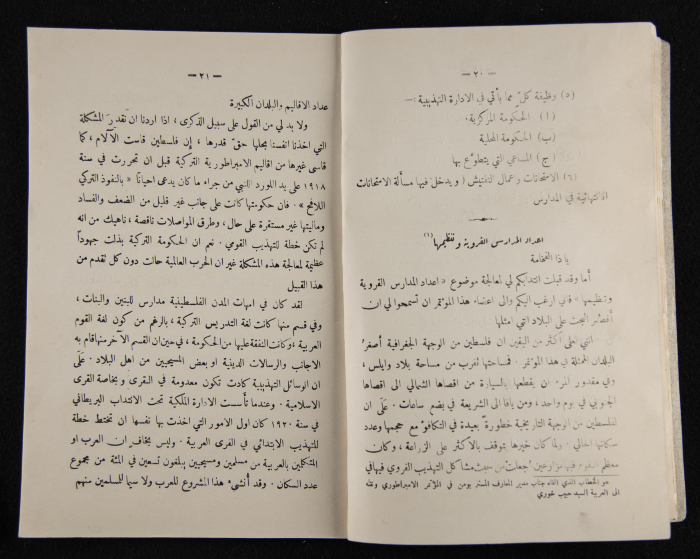 — ٢٠ —
(٥) وظيفة كل مما يأتي في الادارة التهذيبية :—
(ا) الحكومة المركزية.
(ب) الحكومة المحلية
(ج) المساعي التي يتطوّع بها
(٦) الامتحانات وعمال التفتيش (ويدخل فيها مسألة الامتحانات
الانتهائية في المدارس
اعداد المدارس القروية وتنظيمها (١)
يا ذا الفخامة
أما وقد قبلت انتدابكم لي لمعالجة موضوع « اعداد المدارس القروية
وتنظيمها » فاني ارغب اليكم والى اعضاء هذا المؤتمر ان تسمحوا لي ان
أقصر البحث على البلاد التي امثلها
انني اعلى أكثر من اليقين ان فلسطين من الوجهة الجغرافية أصغر
البلدان الممثلة في هذا المؤتمر . فمساحتها تقرب من مساحة بلاد وايلس ،
وفي مقدور المرء ان يقطعها بالسيارة من اقصاها الشمالي الى اقصاها
الجنوبي في يوم واحد ، ومن يافا الى الشريعة في بضع ساعات . عَلَى ان
فلسطين من الوجهة التاريخية خطورة بعيدة في التكافؤ مع حجمها وعدد
سكانها الحالي . ولما كان خيرها يتوقف بالاكثر على الزراعة ، وكان
معظم جعلت من حيث مشاكل التهذيب القروي فيها في
هو الخطاب الذي القاه جناب مدير المعارف المستر بومن في المؤتمر الامبراطوري ونقله
الى العربية السيد حبيب خوري
— ٢١ —
عداد الاقاليم والبلدان الكبيرة
ولا بد لي من القول على سبيل الذكرى ، اذا اردنا ان نقدر المشكلة
التي اخذنا انفسنا بحلها حقّ قدرها ، إن فلسطين قاست الآلام ، كما
قاسى غيرها من اقاليم الامبراطورية التركية قبل ان تحررت في سنة
١٩١٨ على يد اللورد اللنبي من جراء ما كان يدعى احيانًا « بالنفوذ التركي
اللافح » . فان حكومتها كانت على جانب غير قليل من الضعف والفساد
وماليتها غير مستقرة على حال ، وطرق المواصلات ناقصة ، ناهيك من انه
لم تكن خطة للتهذيب القومي . نعم ان الحكومة التركية بذلت جهوداً
عظيمة لمعالجة هذه المشكلة غير ان الحرب العالمية حالت دون كل تقدم من
هذا القبيل
لقد كان في امهات المدن الفلسطينية مدارس للبنين والبنات ،
وفي قسم منها كانت لغة التدريس التركية ، بالرغم من كون لغة القوم
العربية ؛ وكانت النفقة عليها من الحكومة ، في حين ان القسم الآخر منها قام به
الاجانب والرسالات الدينية او بعض المسيحيين من اهل البلاد . عَلَى
ان الوسائل التهذيبية كادت تكون معدومة في القرى وبخاصة القرى
الاسلامية . وعندما تأسست الادارة الملكية تحت الانتداب البريطاني
في سنة ١٩٢٠ كان اول الامور التي اخذت بها نفسها ان تختط خطة
للتهذيب الابتدائي في القرى العربية . وليس بخاف ان العرب او
المتكلمين بالعربية من مسلمين ومسيحيين يبلغون تسعين في المئة من مجموع
عدد السكان . وقد أنشىء هذا المشروع للعرب ولا سيما للمسلمين منهم